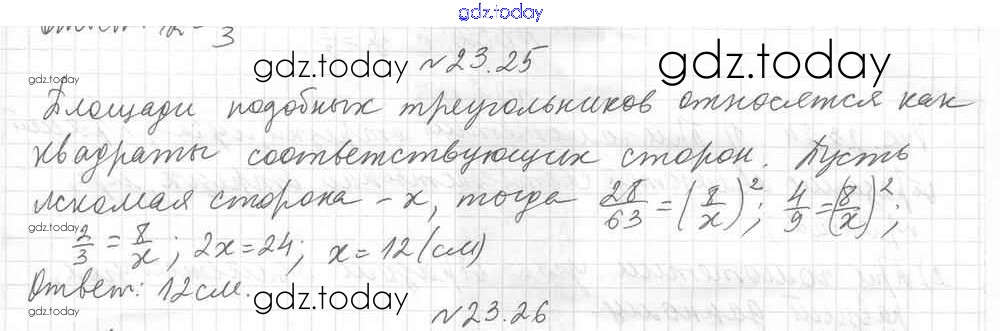 gdz.today
Ответ:
gdz.today №23.25 gdz.today
gdz.today
Площади подобных треугольников относятся как
квадраты соответствующих сторон. Пусть
искомая сторона - x, тогда 28/63 = (8/x)²; 4/9 = (8/x)²;
gdz.today
2/3 = 8/x; 2x = 24; x = 12 (см)
Ответ: 12 см.
gdz.today gdz.today
№23.26